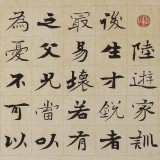 陸遊家訓
後生才銳者
最易壞若有
之父兄當以
為憂不可以